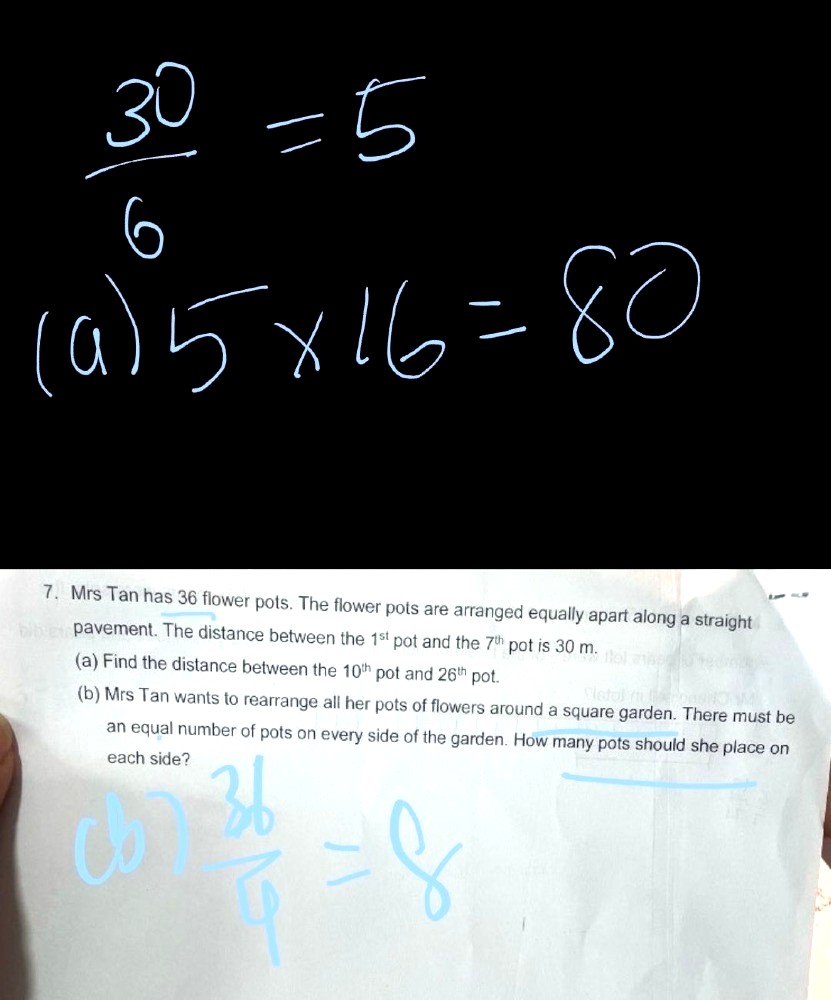 30/6 = 5
(a) 5 × 16 = 80
7. Mrs Tan has 36 flower pots. The flower pots are arranged equally apart along a straight
pavement. The distance between the 1st pot and the 7th pot is 30 m.
(a) Find the distance between the 10th pot and 26th pot.
(b) Mrs Tan wants to rearrange all her pots of flowers around a square garden. There must be
an equal number of pots on every side of the garden. How many pots should she place on
each side?
(b) 36/4 = 8